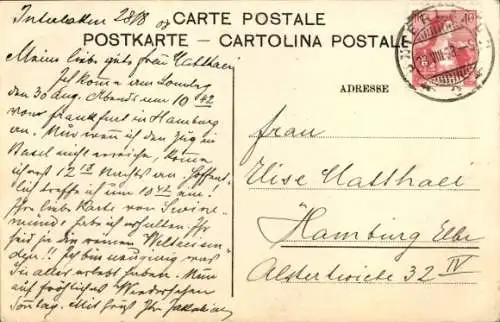 Interlaken 28/8 07
CARTE POSTALE
POSTKARTE – CARTOLINA POSTALE
ADRESSE
Meine liebe gute Frau Matthaei
Ich komme am Sonntag
den 30 Aug. Abends um 10 42
von Frankfurt in Hamburg
an. Nur wenn ich den Zug in
Basel nicht erreiche, komme
ich erst 12 Nachts an. Hoffent-
lich treffe ich um 10 42 ein!
Ihr liebe Karte von Swine-
münde habe ich erhalten. Ihr
seid ja die reinen
Ich bin neugierig was
Sie alles erlebt haben. Nun
auf fröhliches Wiedersehen
Sonntag. Mit Gruß Ihr
Frau
Elise Matthaei
Hamburg Elbe
Alsterwiete 32 IV